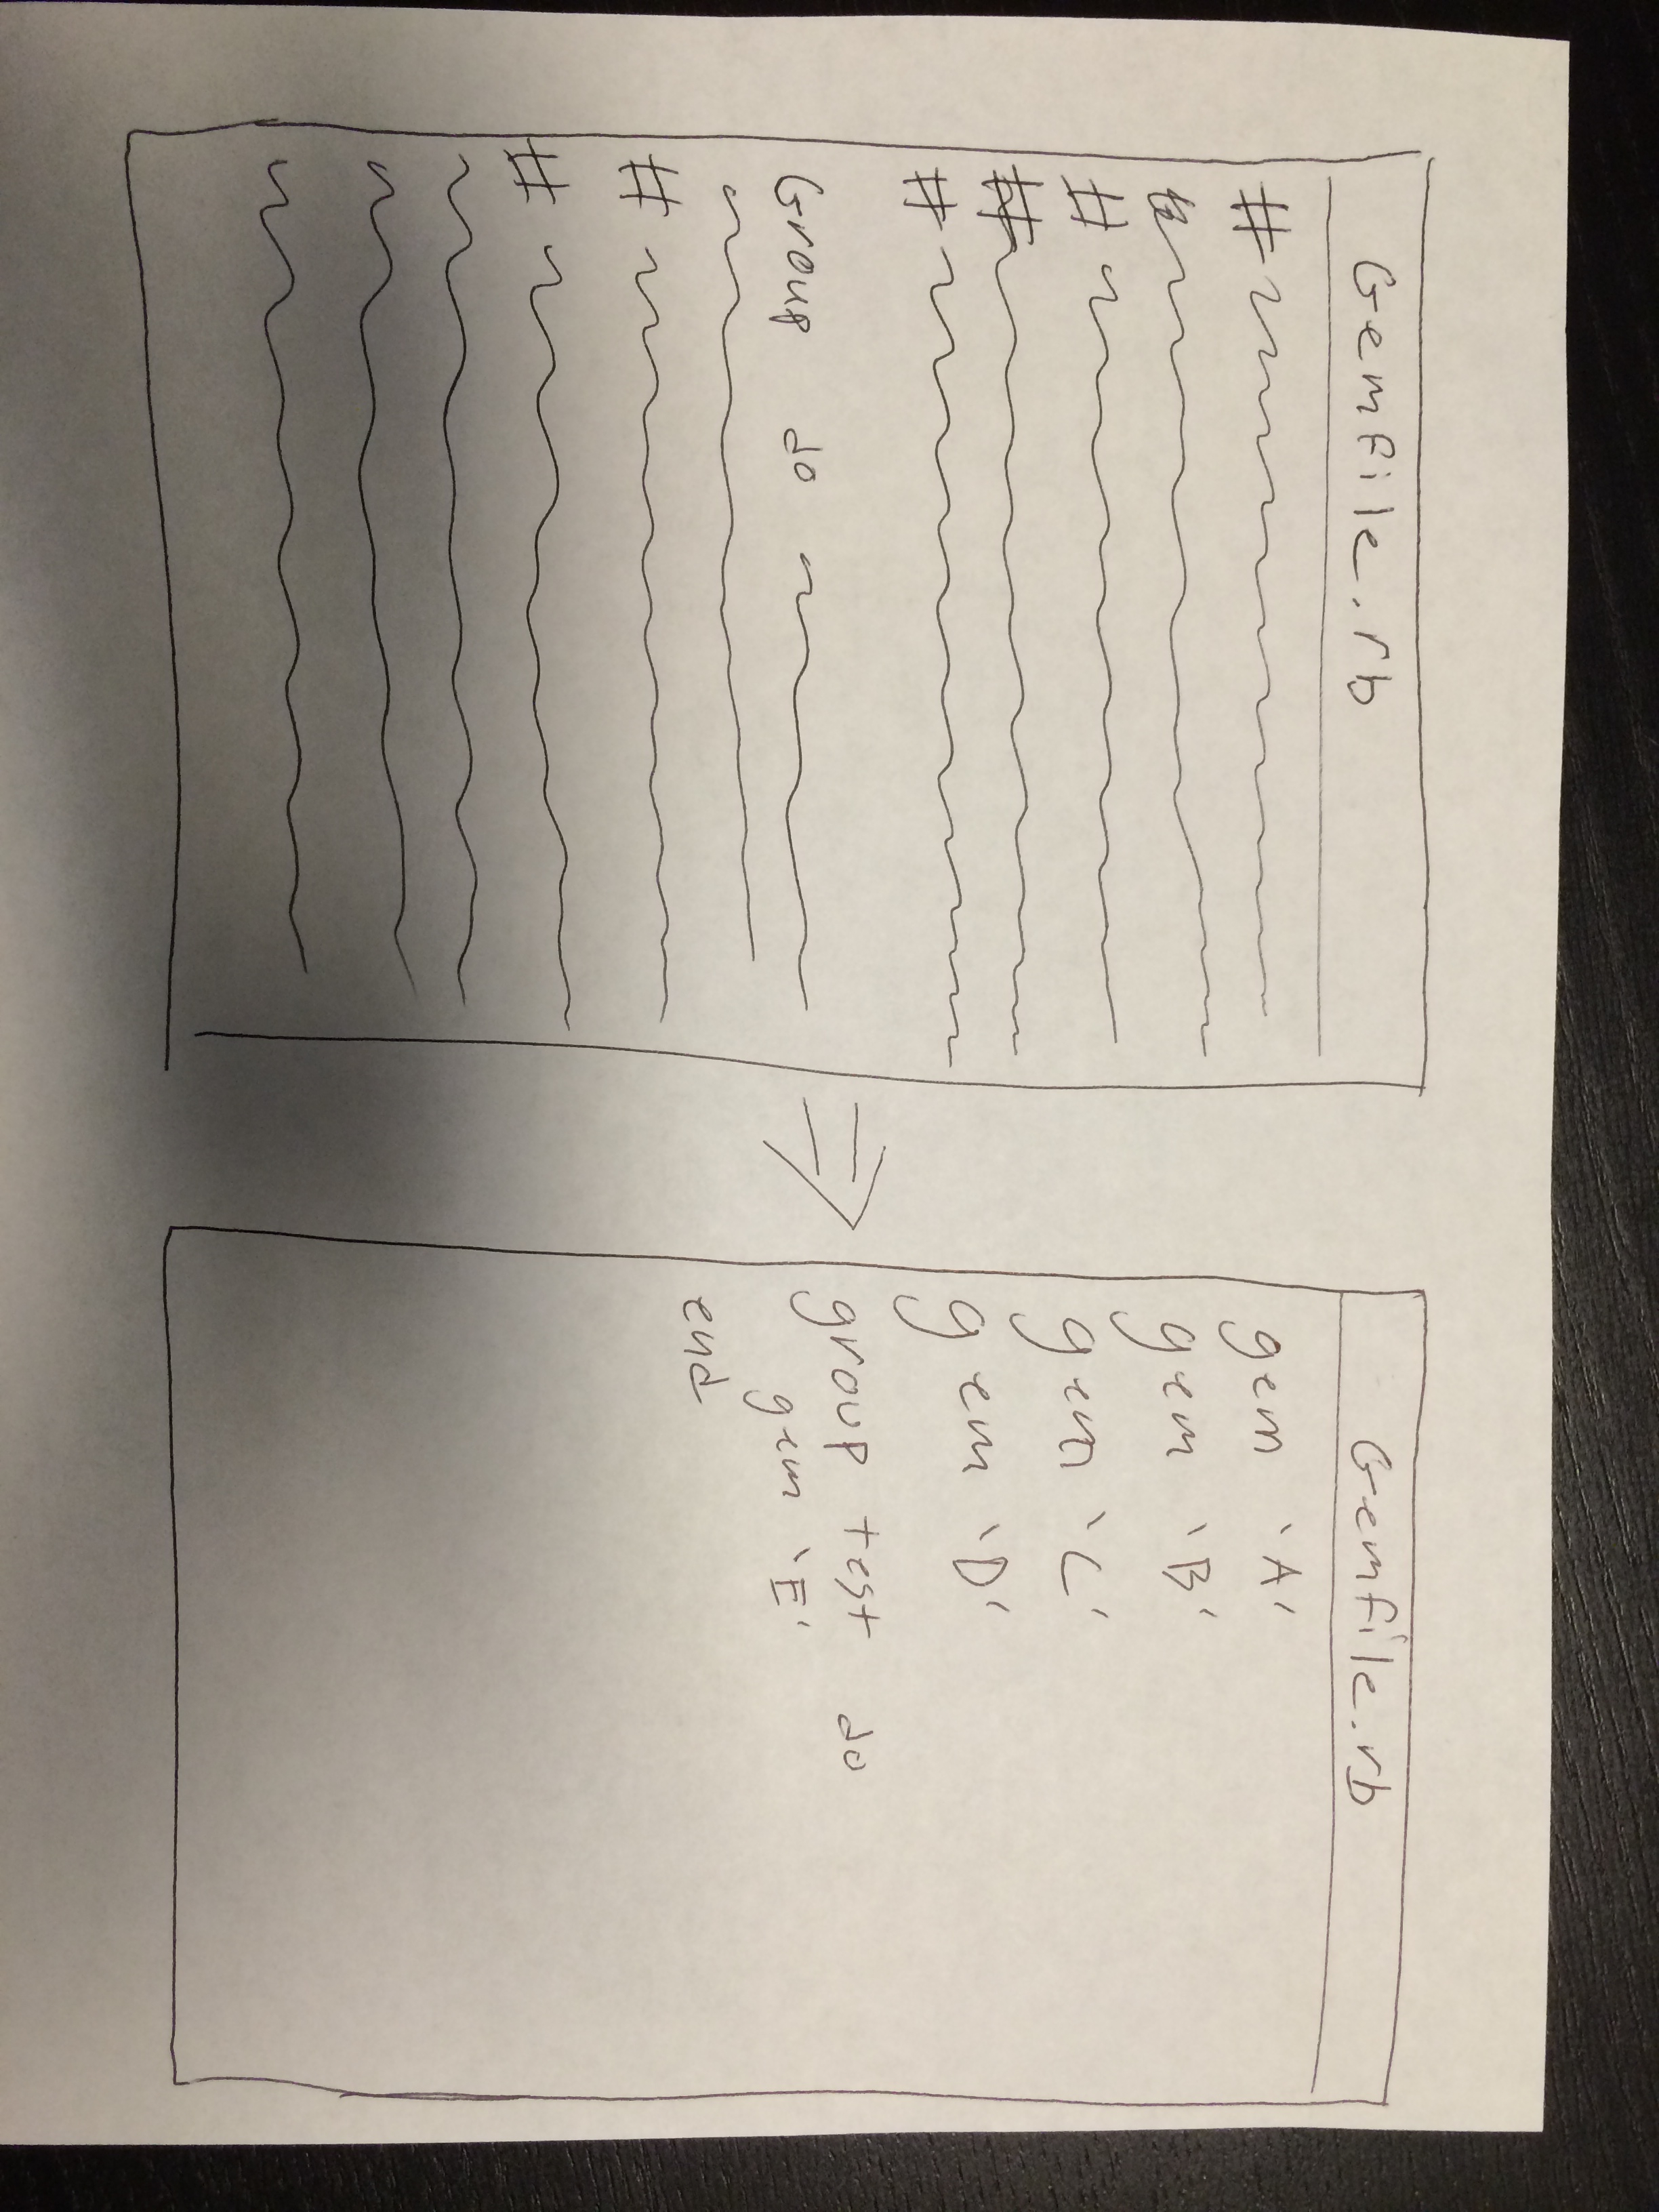 Gemfile.rb
#
#
#
#
Group do
#
#
Gemfile.rb
gem 'A'
gem 'B'
gem 'C'
gem 'D'
group test do
gem 'E'
end